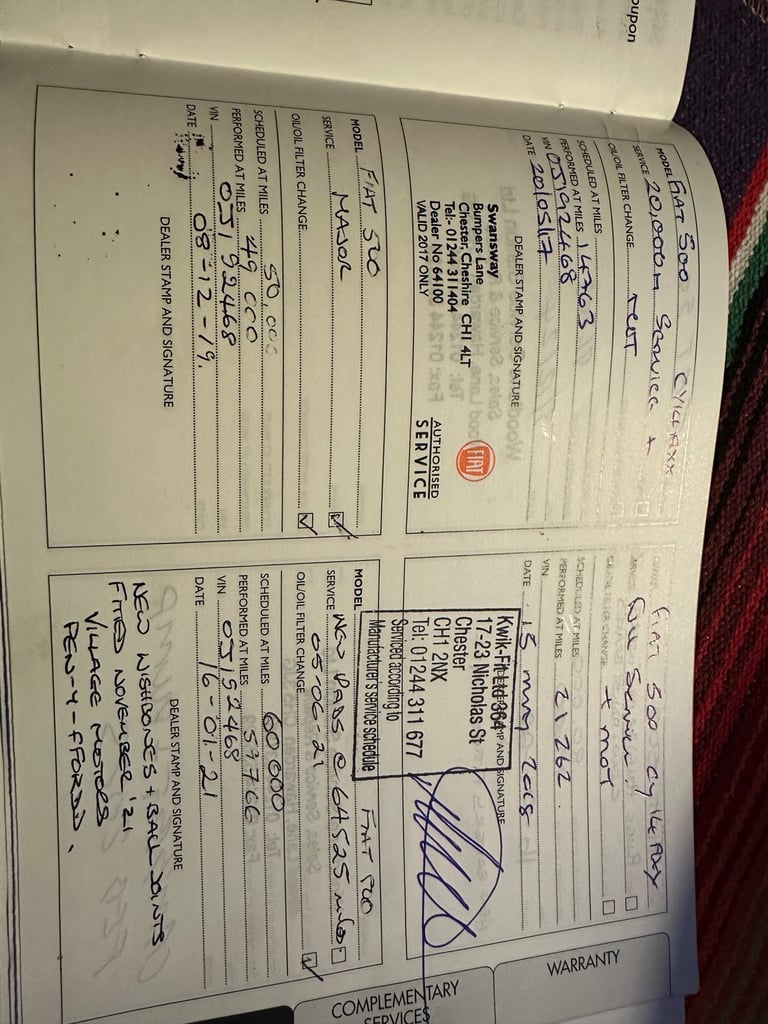 MODEL FIAT 500 CY14 AXX
SERVICE 20,000m Service +
OIL/OIL FILTER CHANGE
SCHEDULED AT MILES
PERFORMED AT MILES 14763
VIN 05192468
DATE 20/05/17
DEALER STAMP AND SIGNATURE
Swansway
Bumpers Lane
Chester, Cheshire CH1 4LT
Tel:- 01244 311404
Dealer No 64100
VALID 2017 ONLY
FIAT
AUTHORISED
SERVICE
FIAT 500
Service
+ MOT
SCHEDULED AT MILES
PERFORMED AT MILES 21262.
VIN
DATE 15 may 2018
AND SIGNATURE
Kwik-Fit Ltd 364
17-23 Nicholas St
Chester
CH1 2NX
Tel: 01244 311 677
Serviced according to
Manufacturer's service schedule
MODEL FIAT 500
SERVICE MAJOR
OIL/OIL FILTER CHANGE
SCHEDULED AT MILES 50,000
PERFORMED AT MILES 49000
VIN 05192468
DATE 08-12-19.
DEALER STAMP AND SIGNATURE
MODEL FIAT 500
SERVICE NEW PADS @ 64525 miles
05-06-21
OIL/OIL FILTER CHANGE
SCHEDULED AT MILES 60000
PERFORMED AT MILES 59766
VIN 05192468
DATE 16-01-21
DEALER STAMP AND SIGNATURE
NEW WISHBONES + BALL JOINTS
FITTED NOVEMBER '21
VILLAGE MOTORS
PEN-Y-FFORDD.
WARRANTY
COMPLEMENTARY
SERVICES